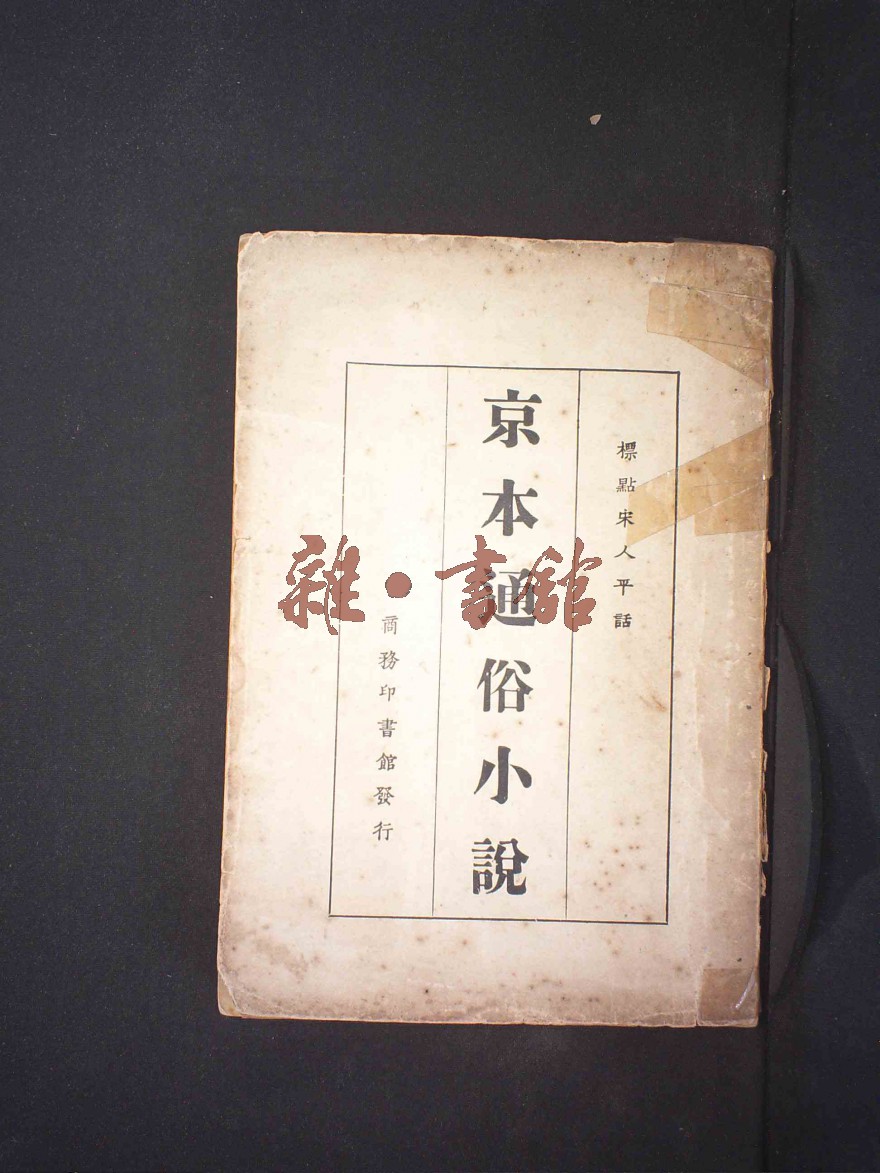 標點宋人平話
京本通俗小說
商務印書館發行
雜·書館